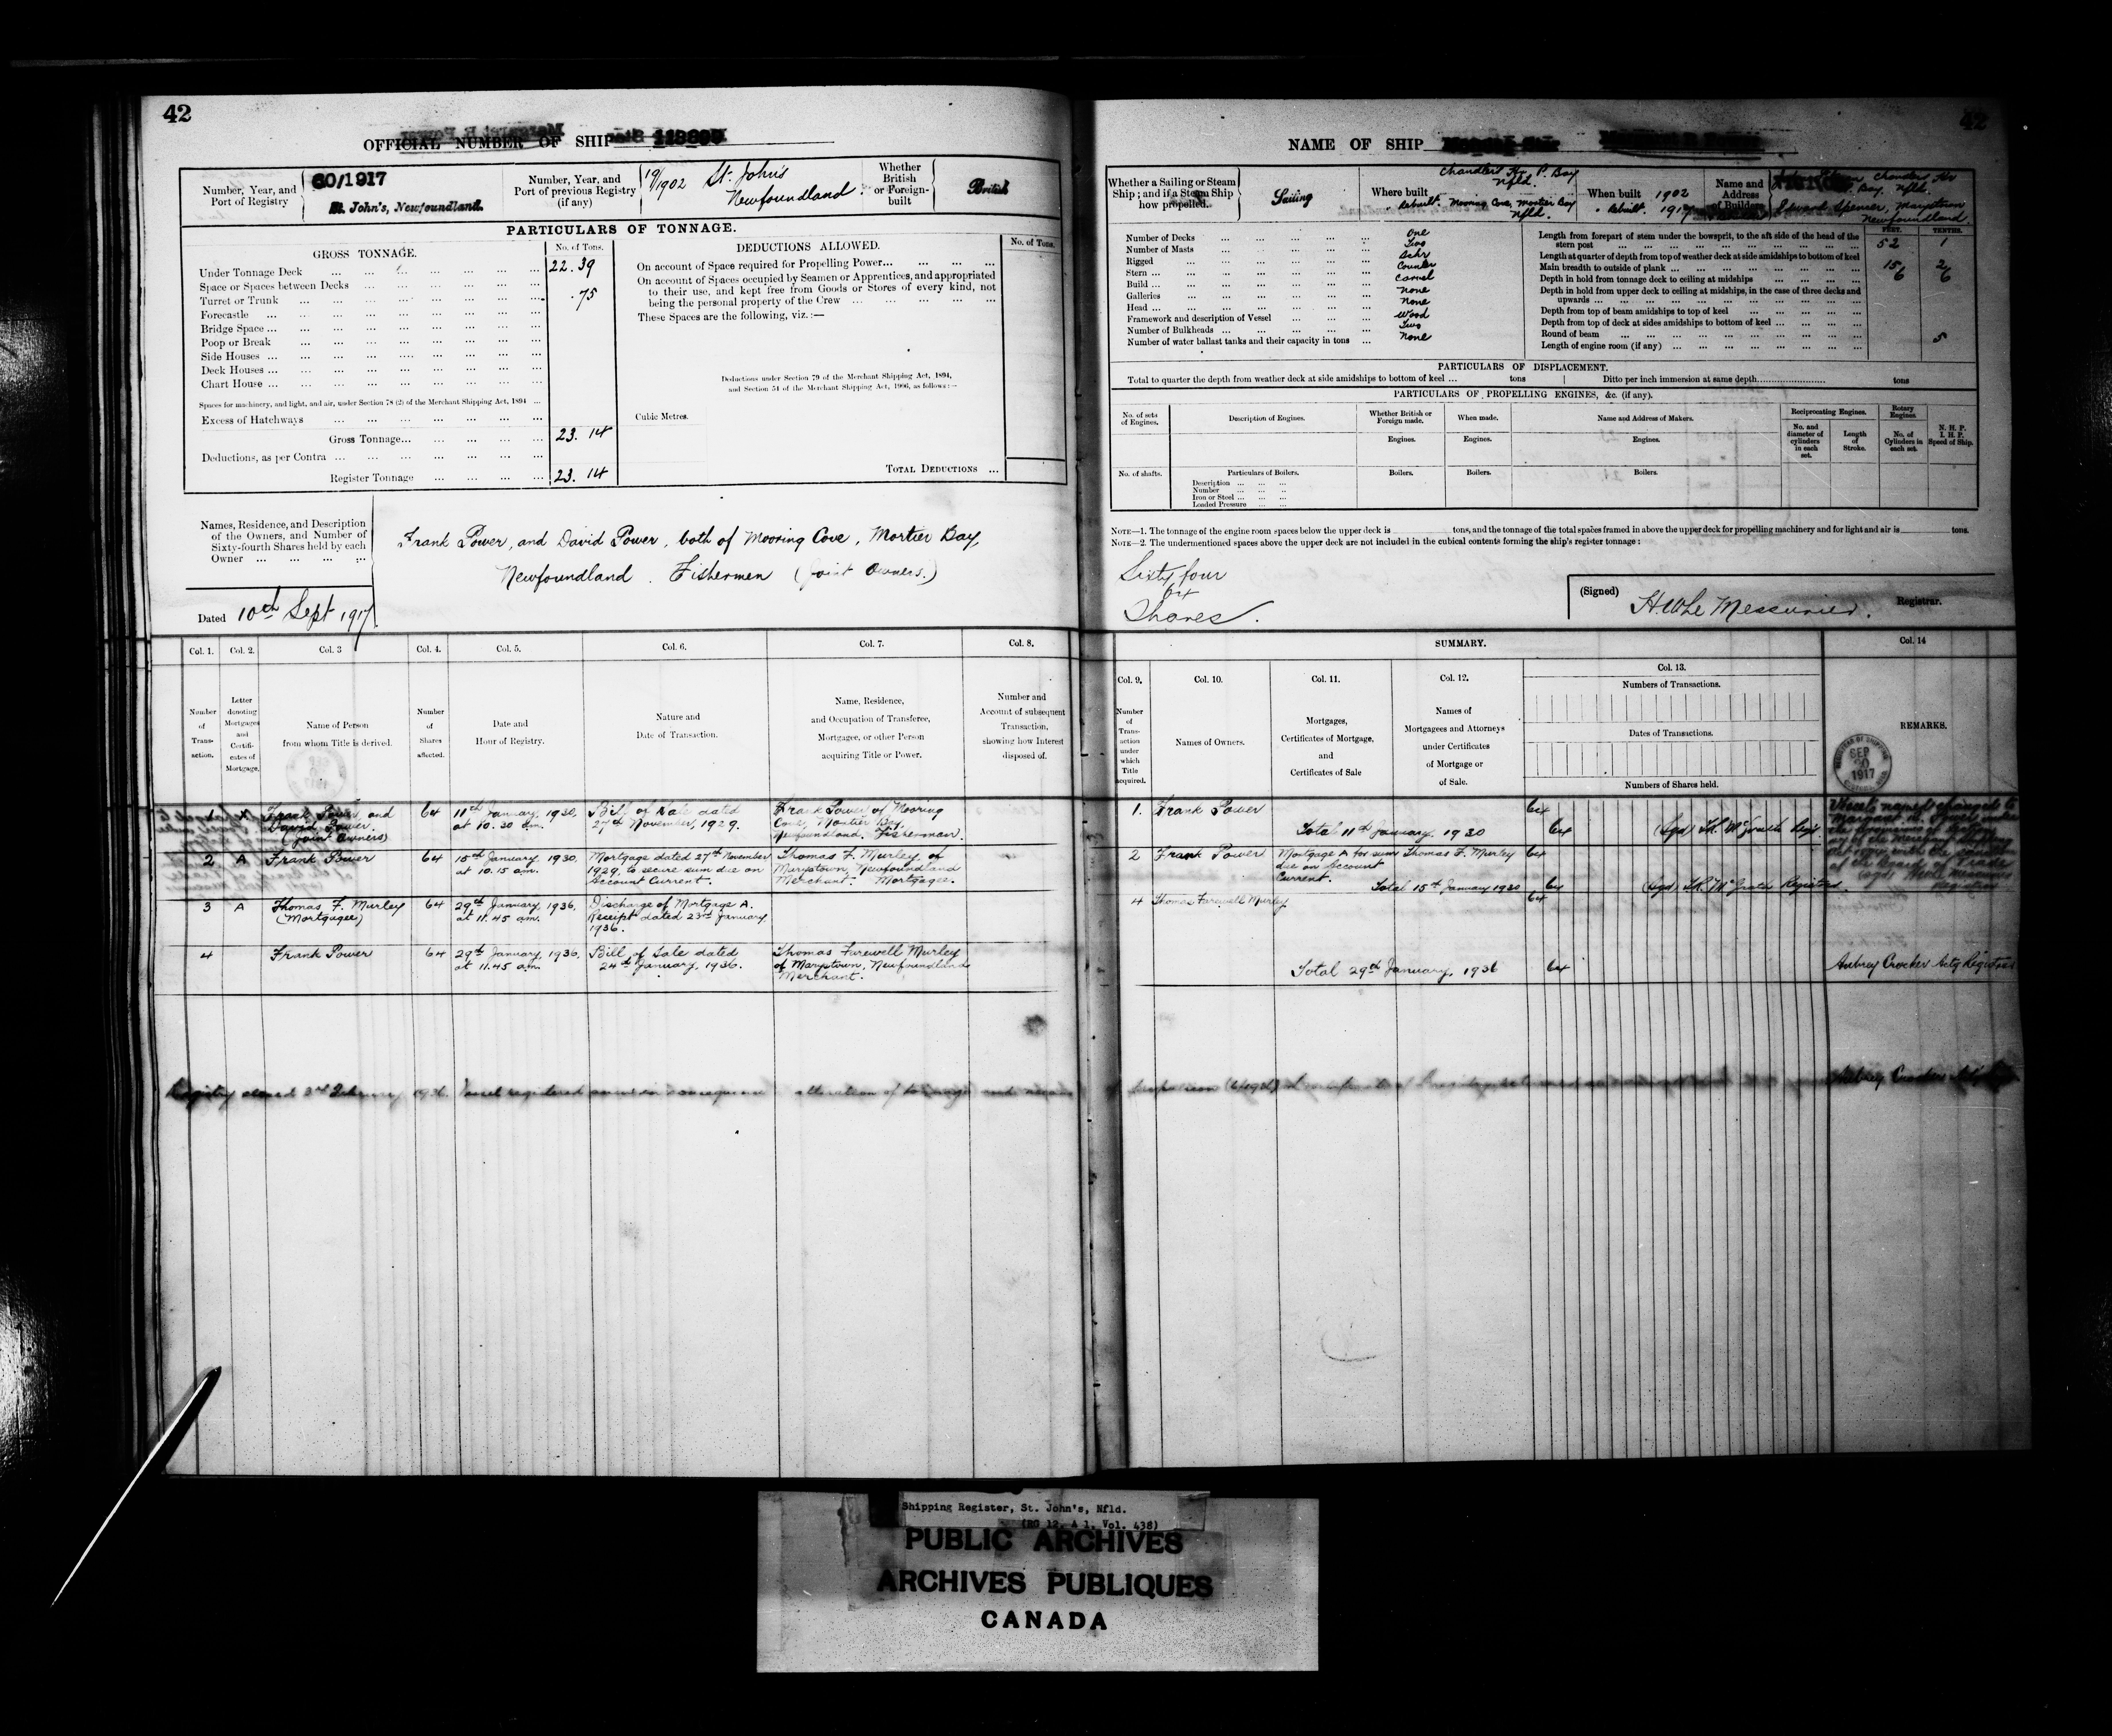 42
OFFICIAL NUMBER OF SHIP
Number, Year, and Port of Registry
60/1917
St. John's, Newfoundland.
Number, Year, and Port of previous Registry (if any)
19/1902 St. John's
Newfoundland
Whether British or Foreign-built
British
PARTICULARS OF TONNAGE.
GROSS TONNAGE.
No. of Tons.
Under Tonnage Deck ... 22.39
Space or Spaces between Decks
Turret or Trunk ... .75
Forecastle
Bridge Space
Poop or Break
Side Houses
Deck Houses
Chart House
Spaces for machinery, and light, and air, under Section 78 (2) of the Merchant Shipping Act, 1894
Excess of Hatchways
Gross Tonnage... 23. 14
Deductions, as per Contra
Register Tonnage 23. 14
DEDUCTIONS ALLOWED.
No. of Tons.
On account of Space required for Propelling Power...
On account of Spaces occupied by Seamen or Apprentices, and appropriated
to their use, and kept free from Goods or Stores of every kind, not
being the personal property of the Crew
These Spaces are the following, viz.:—
Deductions under Section 79 of the Merchant Shipping Act, 1894,
and Section 54 of the Merchant Shipping Act, 1906, as follows:—
Cubic Metres.
TOTAL DEDUCTIONS ...
Names, Residence, and Description
of the Owners, and Number of
Sixty-fourth Shares held by each
Owner
Frank Power, and David Power, both of Mooring Cove, Mortier Bay,
Newfoundland. Fishermen (Joint Owners.)
Dated 10th Sept 1917
Col. 1. Col. 2. Col. 3 Col. 4. Col. 5. Col. 6. Col. 7. Col. 8.
Number of Transaction.
Letter denoting Mortgages and Certificates of Mortgage.
Name of Person from whom Title is derived.
Number of Shares affected.
Date and Hour of Registry.
Nature and Date of Transaction.
Name, Residence, and Occupation of Transferee, Mortgagee, or other Person acquiring Title or Power.
Number and Account of subsequent Transaction, showing how Interest disposed of.
1 X Frank Power and David Power. (Joint Owners) 64 11th January, 1930, at 10.30 a.m. Bill of Sale dated 27th November, 1929. Frank Power of Mooring Cove, Mortier Bay, Newfoundland, Fisherman.
2 A Frank Power 64 15th January, 1930, at 10.15 a.m. Mortgage dated 27th November 1929, to secure sum due on Account Current. Thomas F. Murley, of Marystown, Newfoundland Merchant. Mortgagee.
3 A Thomas F. Murley (Mortgagee) 64 29th January, 1936, at 11.45 a.m. Discharge of Mortgage A. Receipt dated 23rd January, 1936.
4 Frank Power 64 29th January, 1936, at 11.45 a.m. Bill of Sale dated 24th January, 1936. Thomas Farewell Murley of Marystown, Newfoundland Merchant.
Registry closed 3rd February 1936. Vessel registered anew in consequence alteration of tonnage and
42
NAME OF SHIP
Whether a Sailing or Steam Ship; and if a Steam Ship how propelled.
Sailing
Where built
Chandlers Hr. P. Bay
Nfld.
" Rebuilt. Mooring Cove, Mortier Bay
Nfld.
When built 1902
" Rebuilt. 1917
Name and Address of Builders
Chandlers Hr
P. Bay. Nfld.
Edward Spencer, Marystown
Newfoundland
Number of Decks One
Number of Masts Two
Rigged Schr
Stern Counter
Build Carvel
Galleries None
Head None
Framework and description of Vessel Wood
Number of Bulkheads Two
Number of water ballast tanks and their capacity in tons None
FEET. TENTHS.
Length from forepart of stem under the bowsprit, to the aft side of the head of the
stern post 52 1
Length at quarter of depth from top of weather deck at side amidships to bottom of keel
Main breadth to outside of plank 15 2
Depth in hold from tonnage deck to ceiling at midships 6 6
Depth in hold from upper deck to ceiling at midships, in the case of three decks and
upwards
Depth from top of beam amidships to top of keel
Depth from top of deck at sides amidships to bottom of keel
Round of beam 5
Length of engine room (if any)
PARTICULARS OF DISPLACEMENT.
Total to quarter the depth from weather deck at side amidships to bottom of keel ... tons Ditto per inch immersion at same depth tons
PARTICULARS OF PROPELLING ENGINES, &c. (if any).
No. of sets of Engines.
Description of Engines.
Whether British or Foreign made.
When made.
Name and Address of Makers.
Reciprocating Engines.
Rotary Engines.
N. H. P. I. H. P. Speed of Ship.
Engines. Engines. Engines.
No. and diameter of cylinders in each set.
Length of Stroke.
No. of Cylinders in each set.
No. of shafts. Particulars of Boilers. Boilers. Boilers. Boilers.
Description
Number
Iron or Steel
Loaded Pressure
NOTE—1. The tonnage of the engine room spaces below the upper deck is tons, and the tonnage of the total spaces framed in above the upper deck for propelling machinery and for light and air is tons.
NOTE—2. The undermentioned spaces above the upper deck are not included in the cubical contents forming the ship's register tonnage:
Sixty four
64
Shares.
(Signed) H.W. Le Messurier. Registrar.
SUMMARY.
Col. 9. Col. 10. Col. 11. Col. 12. Col. 13. Col. 14
Number of Transaction under which Title acquired.
Names of Owners.
Mortgages, Certificates of Mortgage, and Certificates of Sale
Names of Mortgagees and Attorneys under Certificates of Mortgage or of Sale.
Numbers of Transactions.
Dates of Transactions.
Numbers of Shares held.
REMARKS.
SEP
20
1917
1. Frank Power 64
Total 11th January, 1930 64 (Sgd) McGrath Regr
2 Frank Power Mortgage A for sum due on Account Current. Thomas F. Murley 64
Total 15th January 1930 64 (Sgd) McGrath Registrar
4 Thomas Farewell Murley 64
Total 29th January, 1936 64 Aubrey Crocker Actg Registrar
Vessels name changed to
Aubrey Crocker
Shipping Register, St. John's, Nfld.
(RG 12, A 1, Vol. 438)
PUBLIC ARCHIVES
ARCHIVES PUBLIQUES
CANADA